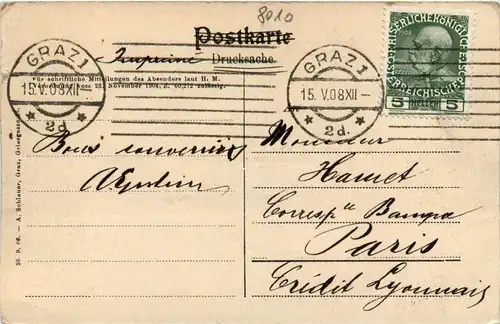 8010
Postkarte
Imprimé Drucksache.
Für schriftliche Mitteilungen des Absenders laut H. M.
Verordnung vom 23. November 1904, Z. 60,272 zulässig.
GRAZ 1
15.V.08XII-
* 2d. *
GRAZ 1
15.V.08XII-
* 2d. *
KAISERLICHE KÖNIGLICHE
ÖSTERREICHISCHE POST
5 HELLER 5
Bons souvenirs
Monsieur
Hamet
Corresp
Paris
Crédit Lyonnais
26. 9. 16. — A. Schlauer, Graz, Griesgasse